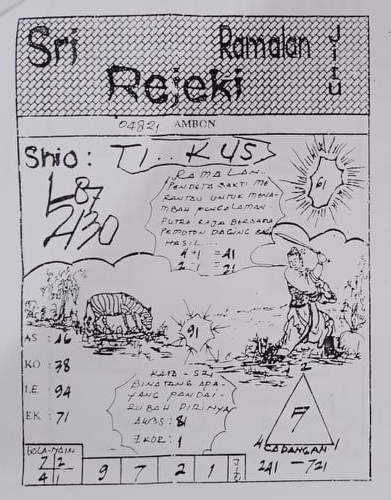 Sri
Ramalan
Jitu
Rejeki
AMBON
Shio: TI..KUS
RAMALAN..
PENDETA SAKTI ME
RANTAU UNTUK MENA-
MBAH PENGALAMAN-
PUTRA RAJA BERSAMA
PEMOTON DAGING BAGI
HASIL....
4+1 = 41
2-1 = 21
61
L87
2130
91
AS : 16
KO : 78
LE : 94
EK : 71
KATA - SRI
BINATANG APA-
YANG PANDAI-
RUBAH DIRINYA
AWAS : 81
EKOR : 1
2
7
4 1
CADANGAN
241 - 721
BOLA-MAIN
7 2
4 1
9 7 2 1